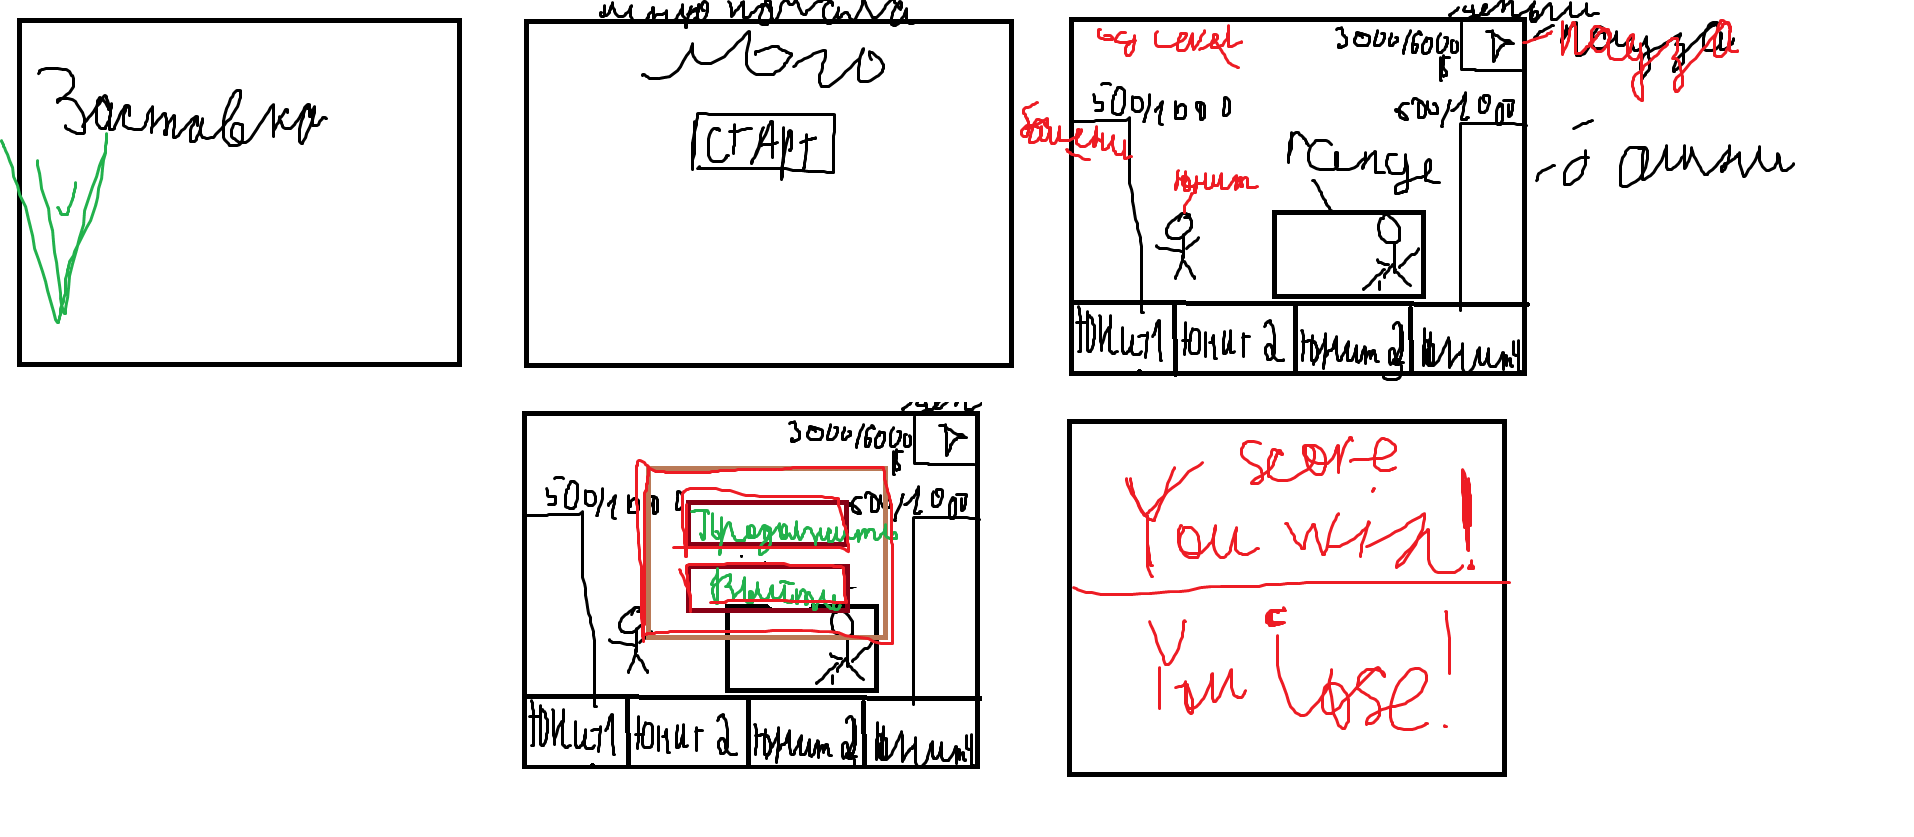 Заставка
Лого
СТАРТ
Level
3000/6000
$
Пауза
500/1000
600/1000
Башени
range
юнит
Юнит1
Юнит 2
Юнит 2
Юнит4
3000/6000
$
500/1000
600/1000
Продолжить
Выйти
Юнит1
Юнит 2
Юнит 2
Юнит4
score
You win!
You Lose!